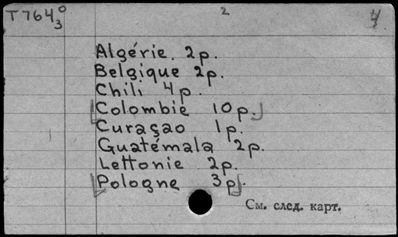 T764₃⁰ 2 4
Algérie. 2p.
Belgique 2p.
Chili 4p.
[Colombie 10p.]
Curaçao 1p.
Guatémala 2p.
Lettonie 2p.
[Pologne 3p].
См. след. карт.